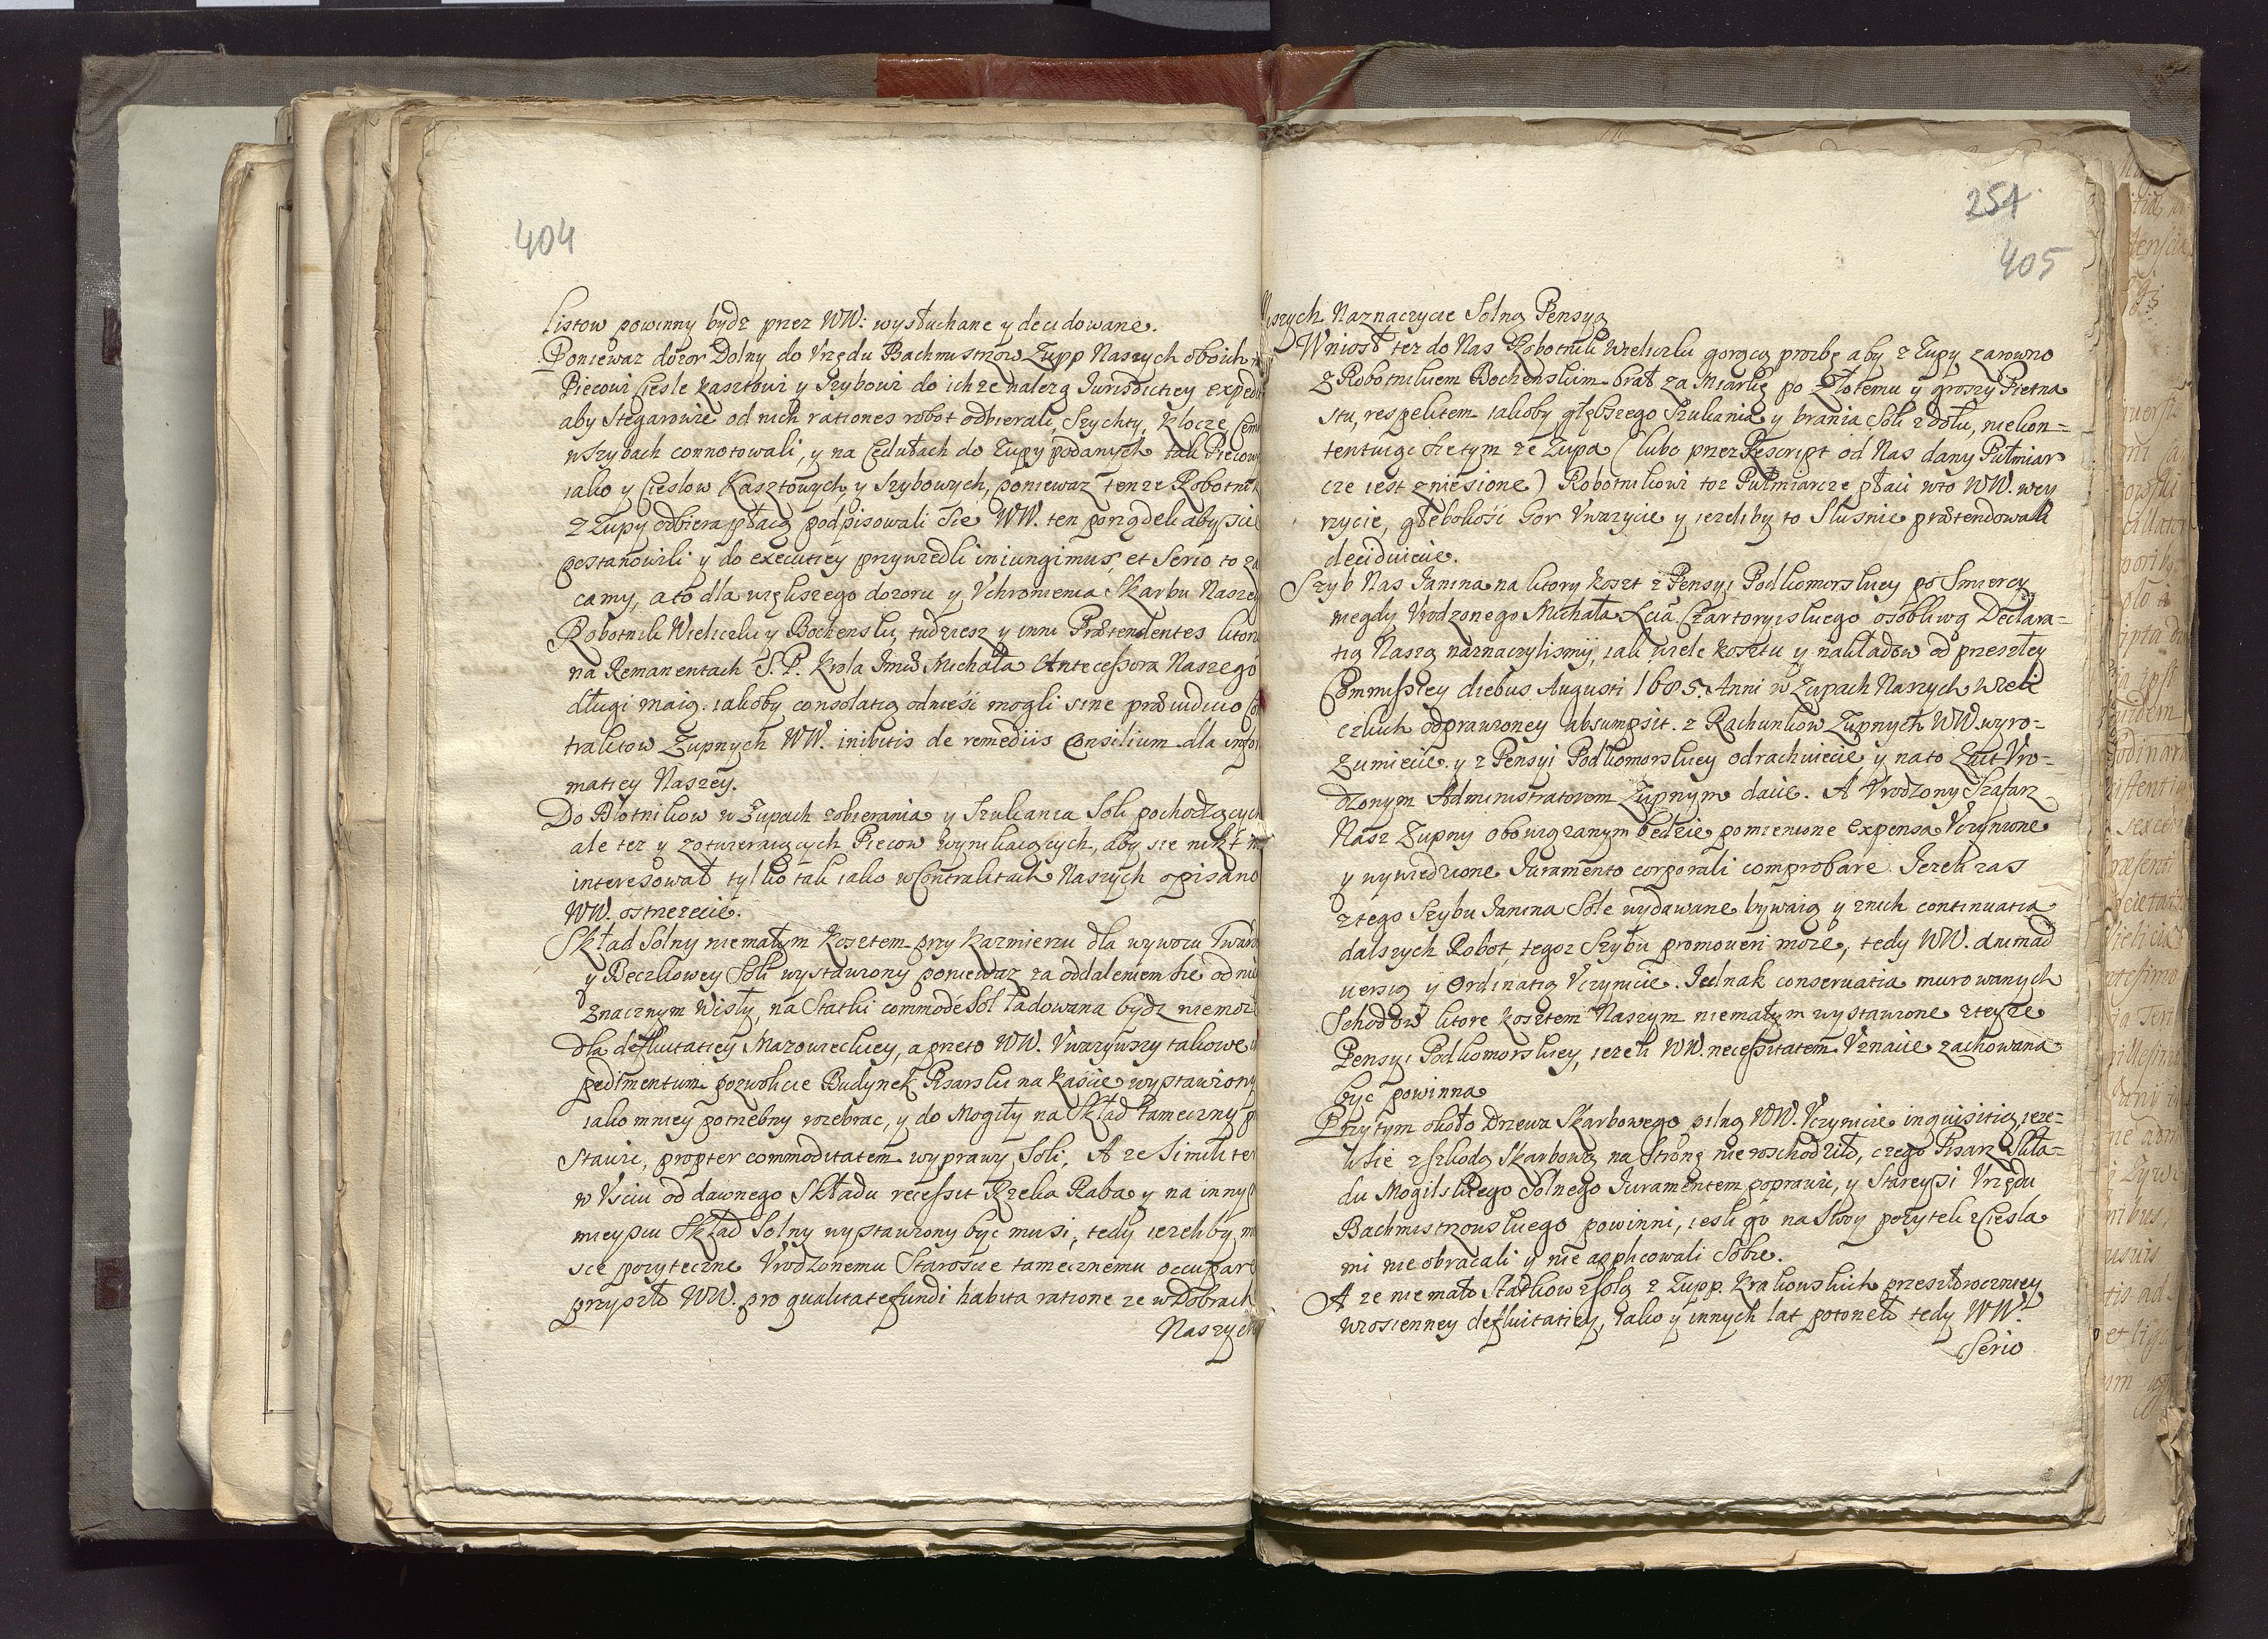 404
listow powinny bydz przez WW: wysłuchane y decidowane.
Poniewaz dozor Dolny do Vrzędu Bachmistrzow Zupp Naszych oboich
Piecowi Ciesle kasztowi y Szybowi do ich ze nalezą Jurisdictiey exped
aby Stegarowie od nich rationes robot odbierali, Szychty, Klocze,
w szybach connotowali, y na Cedułach do Zupy podanych tak Piecow
iako y Cieslow Kasztowych y Szybowych, poniewaz tenze Robotnik
z Zupy odbiera płacą podpisowali Sie WW. ten porządek abyscie
postanowili y do executiey przywiedli iniungimus, et Serio to za
camy, a to dla większego dozoru y Vchronienia Skarbu Naszeg
Robotnik Wielicki y Bochenski, tudziesz y inni Prætendentes ktor
na Remanentach S. P. Krola Jmci Michała Antecessora Naszego
długi maią. iakoby consolatią odnieść mogli sine præiudicio Co
traktow Zupnych WW. inibitis de remediis Consilium dla infor
matiey Naszey.
Do Błotnikow w Zupach zobierania y Szukania Soli pochodzących
ale tez y zotwieraiących Piecow wynikaiących, aby sie nikt n
interesował tylko tak iako w Contraktach Naszych opisano
WW. ostrzezecie.
Skład Solny niemałym Kosztem przy Kazmierzu dla wywozu Twar
y Beczkowey Soli wystawiony poniewaz za oddaleniem sie od nie
znacznym Wisły, na Statki commodè Sol ładowana bydz niemoz
dla defluitatiey Mazowieckiey, a przeto WW. Vwazywszy takowe
pedimentum pozwolicie Budynek Pisarski na Kascie wystawiony
iako mniey potrzebny rozebrac, y do Mogiły na Skład tameczny p
stawic, propter commoditatem wyprawy Soli. A ze Simili te
w Vsciu od dawnego Składu recessit Rzeka Raba y na innym
mieyscu Skład Solny wystawiony byc musi, tedy iezeliby m
sce pozyteczne Vrodzonemu Staroscie tamecznemu occupare
przyszło WW. pro qualitate fundi habita ratione ze w Dobrach
Naszych
251
405
szych Naznaczycie Solną Pensyą
Wniosł tez do Nas Robotnik Wielicki gorącą prozbę aby z Zupy zarowno
z Robotnikiem Bochenskim brał za Miarkę po złotemu y groszy Pietna
stu, respektem iakoby głębszego Szukania y brania Soli z dołu, niekon=
tentuiąc sie tym ze Zupa (lubo przez Rescript od Nas dany Pułmiar
cze iest zniesione) Robotnikowi toz Pułmiarcze płaci w to WW. wey
rzycie, głębokość Gor Vwazycie y iezeliby to Słusznie prætendowali
deciduicie.
Szyb Nas Janina na ktory koszt z Pensyi Podkomorskiey po Smierci
niegdy Vrodzonego Michała Xcia Czartoryiskiego osobliwą Declara=
tią Naszą naznaczylismy, iak wiele kosztu y nakładow od przeszłey
Commissiey diebus Augusti 1685. Anni w Zupach Naszych Wieli
czkich odprawioney absumpsit. z Rachunkow Zupnych WW. wyro=
zumiecie. y z Pensyi Podkomorskiey odrachuiecie y na to Zuit Vro=
dzonym Administratorom Zupnym dacie. A Vrodzony Szafarz
Nasz Zupny obowiązanym będzie pomienione expensa Vczynione
y wywiedzione Juramento corporali comprobare. Jezeli zas
z tego Szybu Janina Sole wydawane bywaią y z nich continuatia
dalszych Robot, tegoz Szybu promoveri moze, tedy WW. animad
uersią y Ordinatią Vczynicie. Jednak conseruatia murowanych
Schodow ktore kosztem Naszym niemałym wystawione z teyze
Pensyi Podkomorskiey, iezeli WW. necessitatem Vznacie zachowana
byc powinna
Przytym około Drzewa Skarbowego pilną WW. Vczynicie inquisitią, ieze=
li sie z szkodą Skarbową na Stronę nie rozchodziło, czego Pisarz Skła=
du Mogilskiego Solnego Juramentem poprawic, y Stareysi Vrzędu
Bachmistrzowskiego powinni, iesli go na Swoy pozytek z Ciesla
mi nie obracali y nie applicowali Sobie.
A ze nie mało Statkow z Solą z Zupp. Krakowskich przeszłoroczniey
wiosienney defluitatiey, iako y innych lat potoneło tedy WW.
Serio